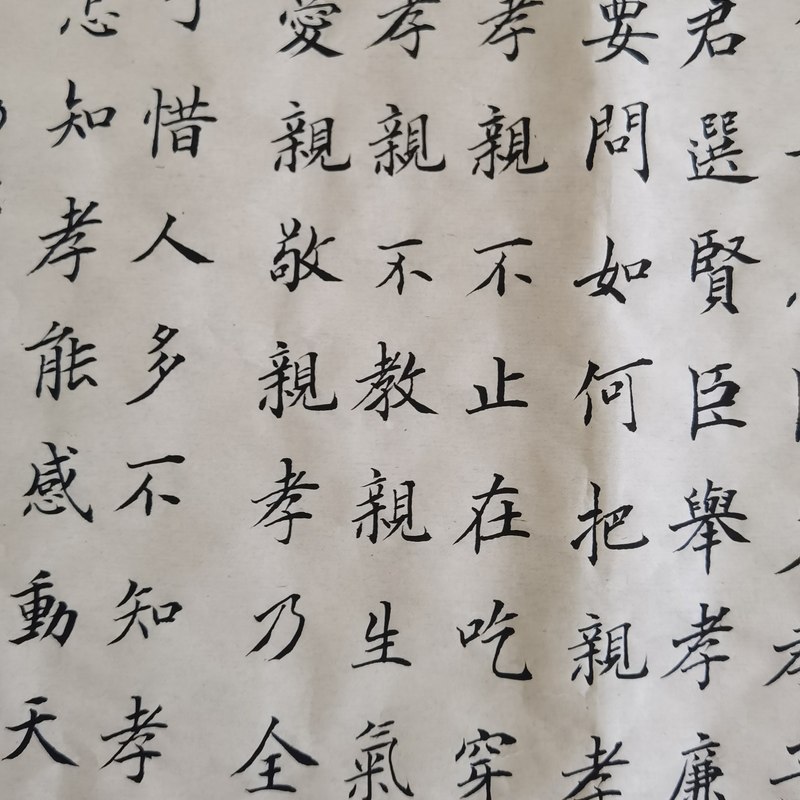 君選賢臣舉孝廉
要問如何把親孝
孝親不止在吃穿
孝親不教親生氣
愛親敬親孝乃全
可惜人多不知孝
怎知孝能感動天